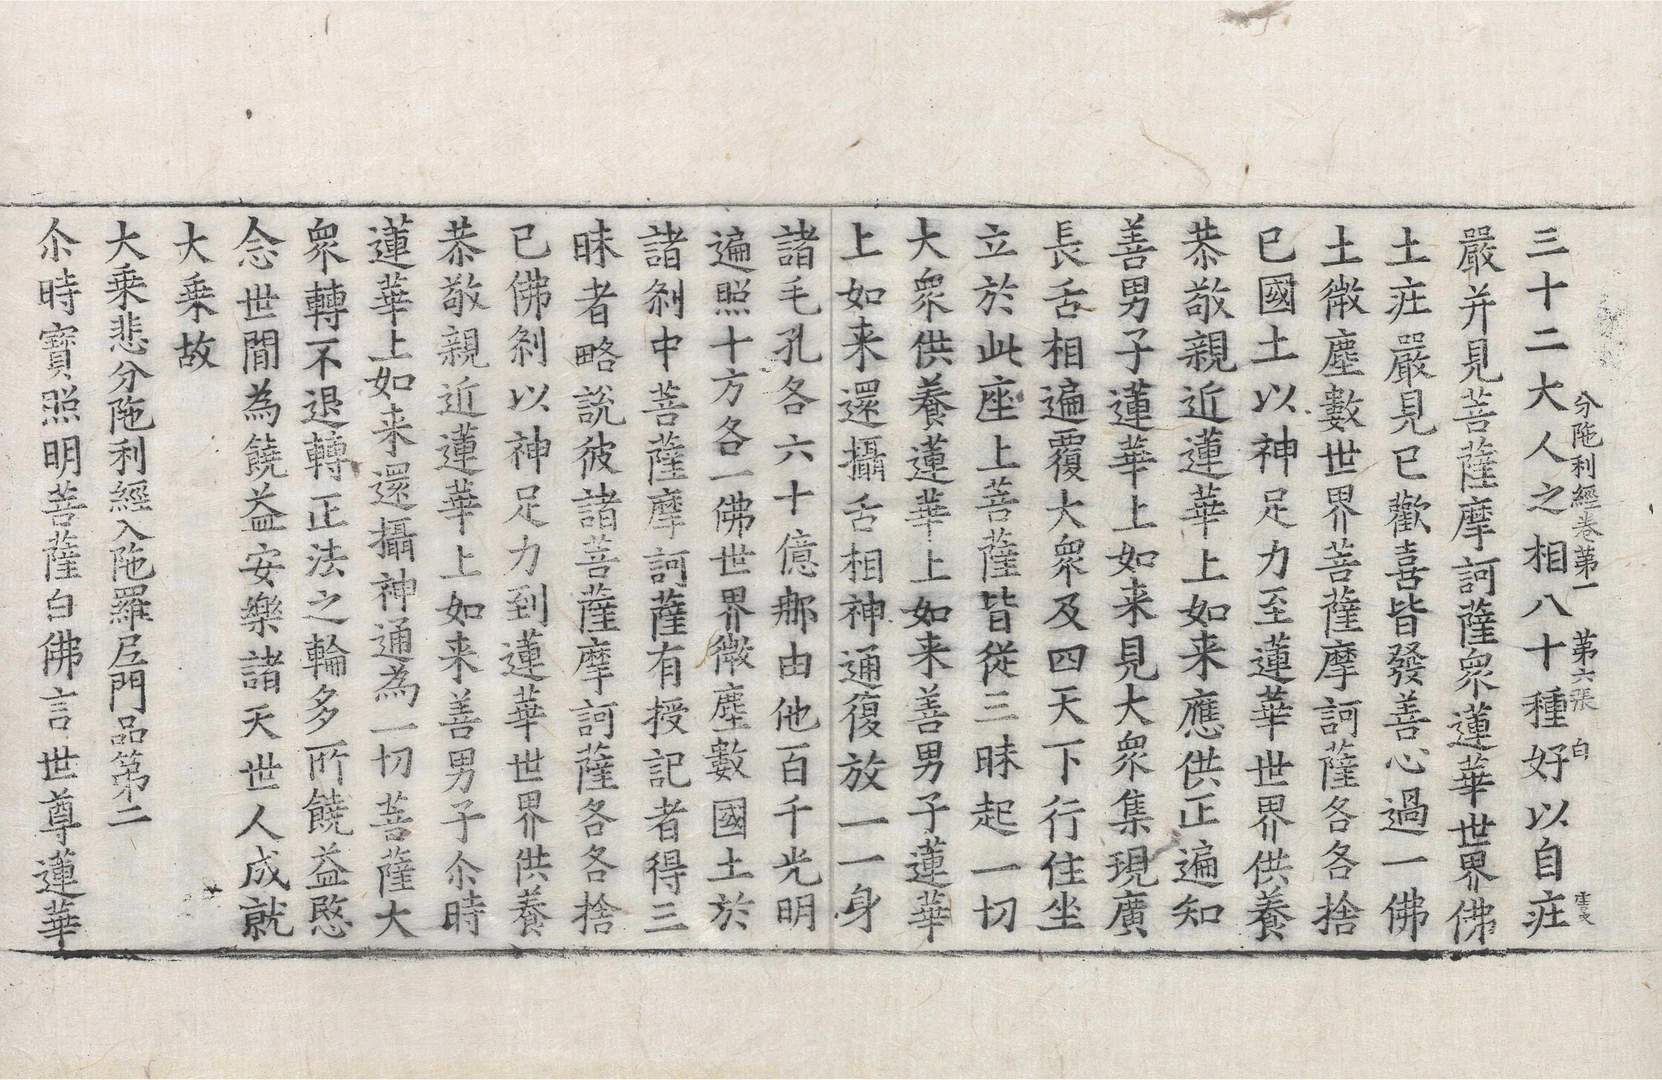 分陁利經卷第一 第六張 白
三十二大人之相八十種好以自㽵
嚴并見菩薩摩訶薩衆蓮華世界佛
土㽵嚴見已歡喜皆發善心過一佛
土微塵數世界菩薩摩訶薩各各捨
已國土以神足力至蓮華世界供養
恭敬親近蓮華上如来應供正遍知
善男子蓮華上如来見大衆集現廣
長舌相遍覆大衆及四天下行住坐
立於此座上菩薩皆從三昧起一切
大衆供養蓮華上如来善男子蓮華
上如来還攝舌相神通復放一一身
諸毛孔各六十億㨙由他百千光明
遍照十方各一佛世界微塵數國土於
諸刹中菩薩摩訶薩有授記者得三
昧者略說彼諸菩薩摩訶薩各各捨
已佛刹以神足力到蓮華世界供養
恭敬親近蓮華上如来善男子尒時
蓮華上如来還攝神通為一切菩薩大
衆轉不退轉正法之輪多所饒益愍
念世間為饒益安樂諸天世人成就
大乗故
大乗悲分陁利經入陁羅尼門品第二
尒時寶照明菩薩白佛言世尊蓮華